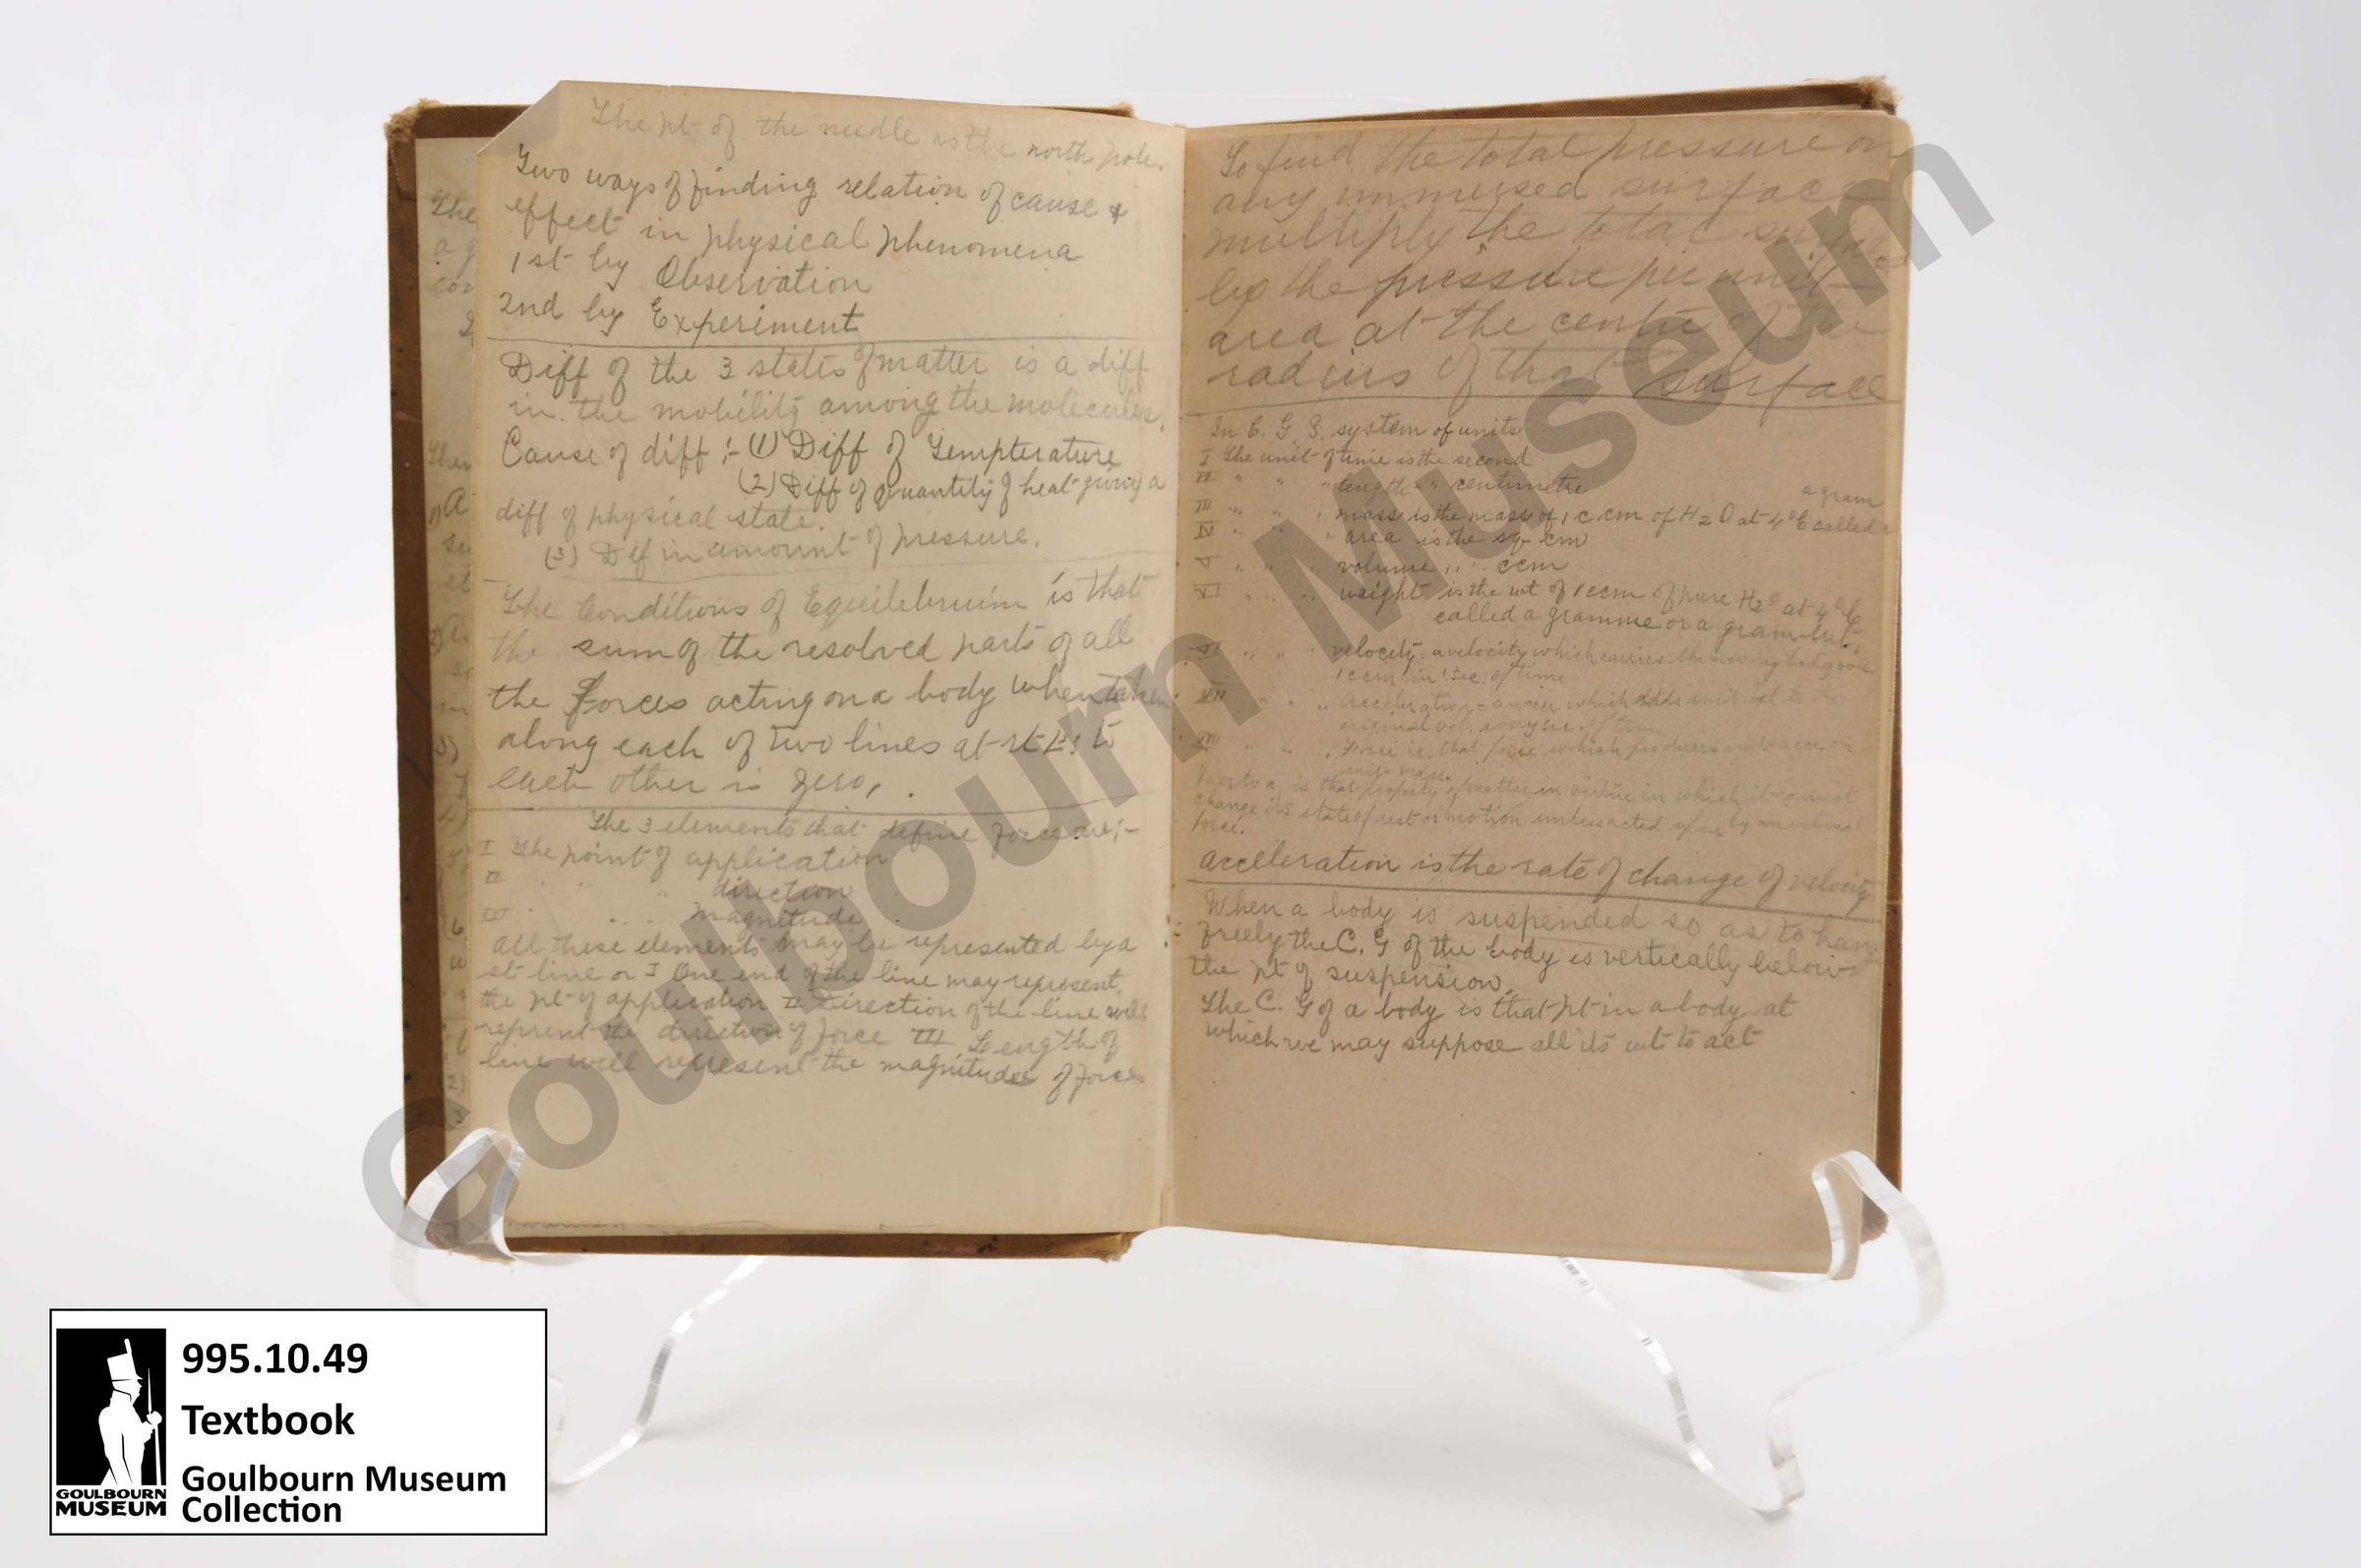 The pt. of the needle is the north pole.
Two ways of finding relation of cause &
effect in physical phenomena
1st by Observation
2nd by Experiment
Diff of the 3 states of matter is a diff
in the mobility among the molecules.
Cause of diff :- (1) Diff of Tempterature
(2) Diff of quantity of heat giving a
diff of physical state.
(3) Dif in amount of pressure.
The Conditions of Equilibrium is that
the sum of the resolved parts of all
the forces acting on a body when taken
along each of two lines at rt
each other is zero,
The 3 elements that define force are;-
I The point of application
II " " direction
III " " magnitude
All these elements may be represented by a
st line or I One end of the line may represent
the pt of application II Direction of the line will
reprent the direction of force III Length of
line will represent the magnitude of force
To find the total pressure on
any immersed surface
multiply the total surface
by the pressure per unit
area at the centre of the
radius of that surface
In C. G. S. system of units
I The unit of time is the second
II " " " length " " centimetre
a gram
III " " " mass is the mass of 1 c cm of H2O at 4°C called
IV " " " area is the sq cm
V " " " volume " " ccm
VI " " " weight is the wt of 1 ccm of pure H2O at 4°C
called a gramme or a gram-wt.
velocity = a velocity which carries the moving body over
1 ccm in 1 sec. of time
VII " " " acceleration = which adds unit vel to the
original vel. every sec. of time
VIII " " " Force is that force which produces on
unit mass.
Inertia is that property of matter in virtue in which it cannot
change its state of rest or motion unless acted upon by an external
force.
Acceleration is the rate of change of velocity
When a body is suspended so as to hang
freely the C. G of the body is vertically below
the pt of suspension.
The C. G of a body is that pt in a body at
which we may suppose all its wt to act
Goulbourn Museum
995.10.49
Textbook
Goulbourn Museum
Collection
GOULBOURN
MUSEUM